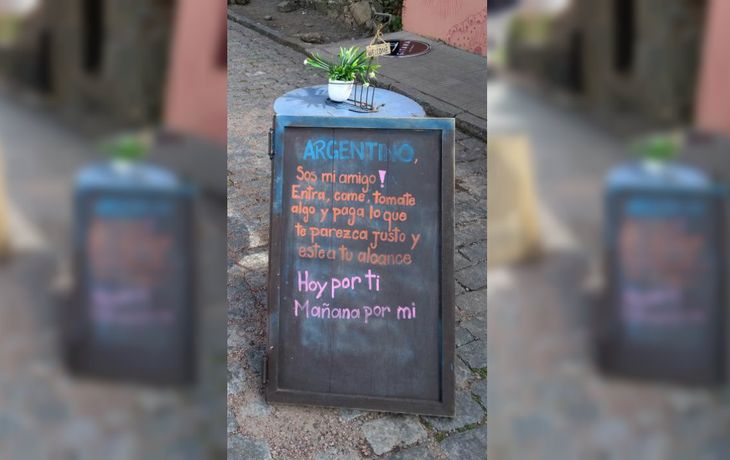 WELCOME
ARGENTINO,
Sos mi amigo!
Entra, comé, tomate
algo y paga lo que
te parezca justo y
este a tu alcance
Hoy por ti
Mañana por mi